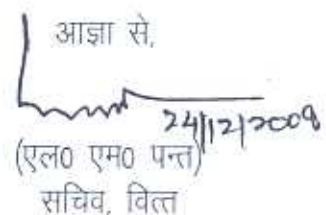 आज्ञा से,
24/12/2009
(एल0 एम0 पन्त)
सचिव, वित्त